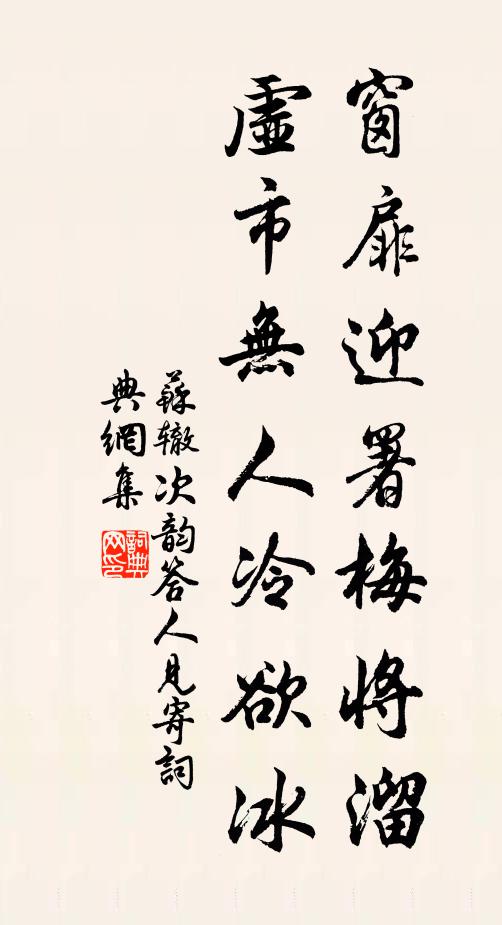 窗扉迎署梅將溜
虛市無人冷欲冰
蘇辙次韵答人見寄詞
典網集
詞典网印